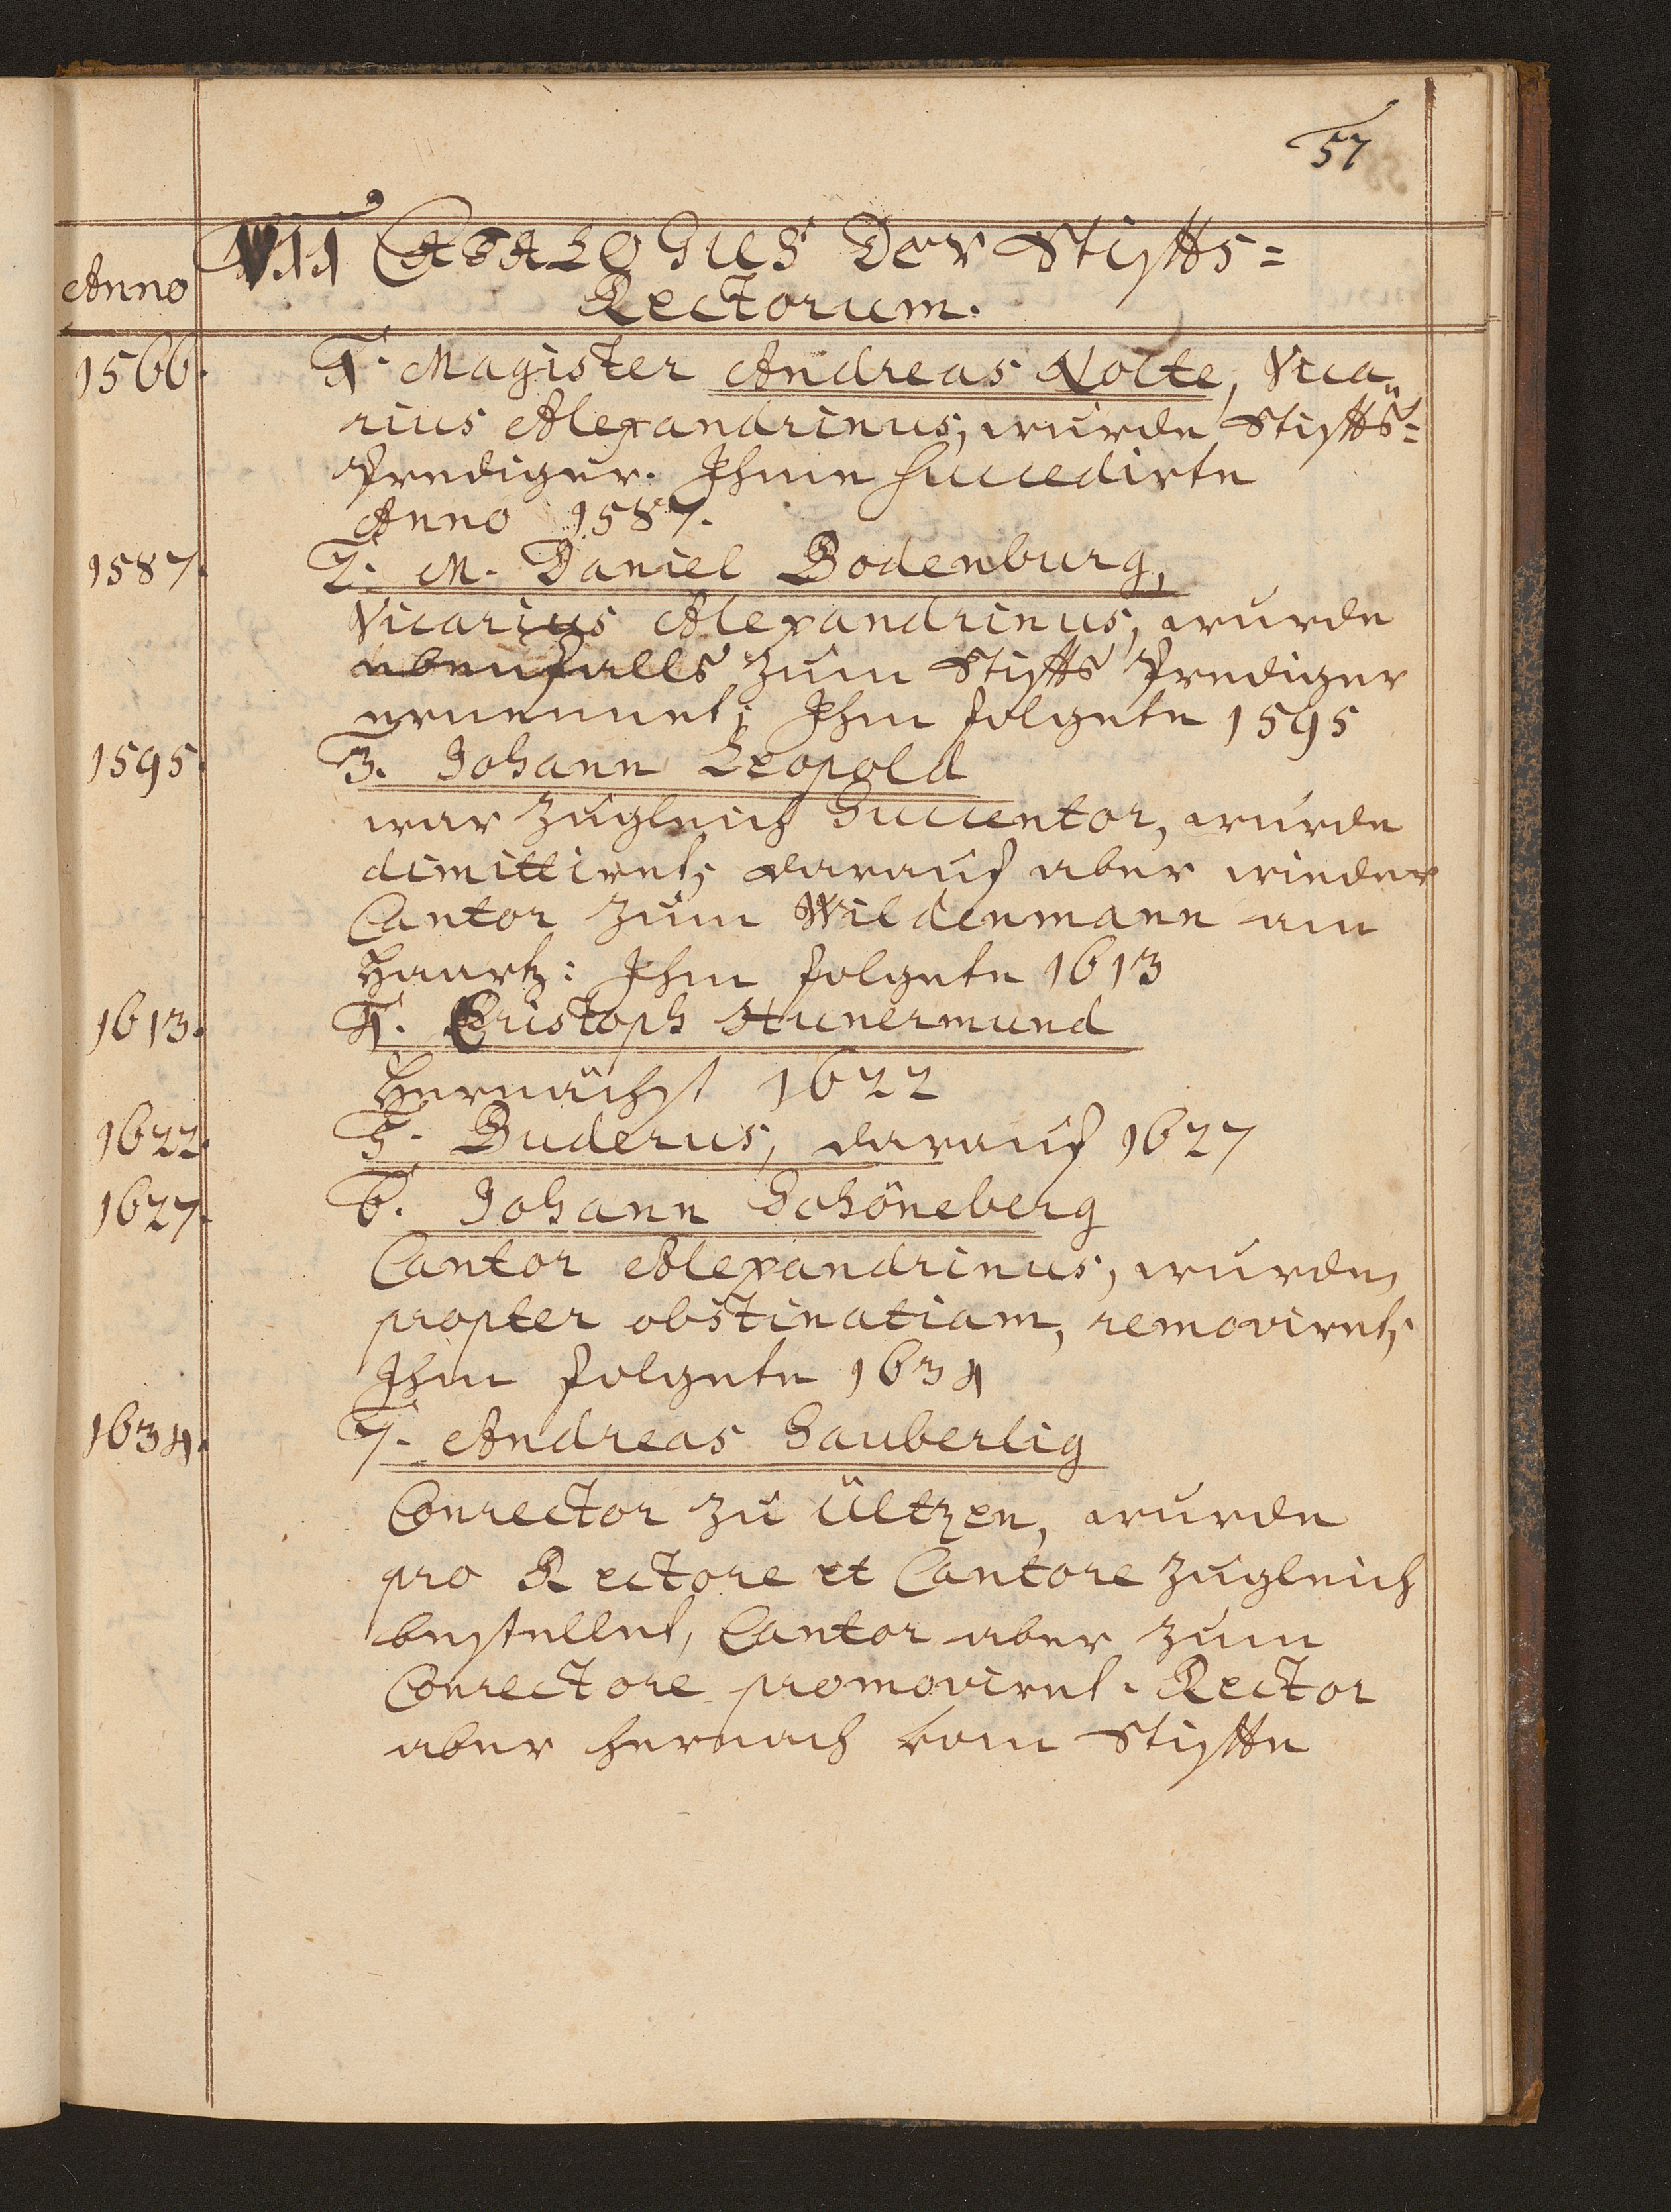 57
VII CATALOGUS Der Stiffts=
Anno
Rectorum.
1566. 1. Magister Andreas Nolte, Vica„
rius Alexandrinus, wurde Stiffts=
Prediger. Ihme succedirte
Anno 1587.
1587. 2. M. Daniel Bodenburg,
Vicarius Alexandrinus, wurde
ebenfalls zum Stiffts Prediger
ernennet; Ihm folgete 1595
1595. 3. Johann Leopold
war zugleich Succentor, wurde
dimittiret, darauf aber wieder
Cantor zum Wildenmann am
Haartz: Ihm folgete 1613
1613. 4. Christoph Hunermund
Hernächst 1622
1622. 5. Buderus, darauf 1627
1627. 6. Johann Schöneberg
Cantor Alexandrinus, wurde,
propter obstinatiam, removiret,
Ihm folgete 1634
1634. 7. Andreas Sauberlig
Conrector zu Ültzen, wurde
pro Rectore et Cantore zugleich
bestellet, Cantor aber zum
Conrectore promoviret. Rector
aber hernach vom Stiffte